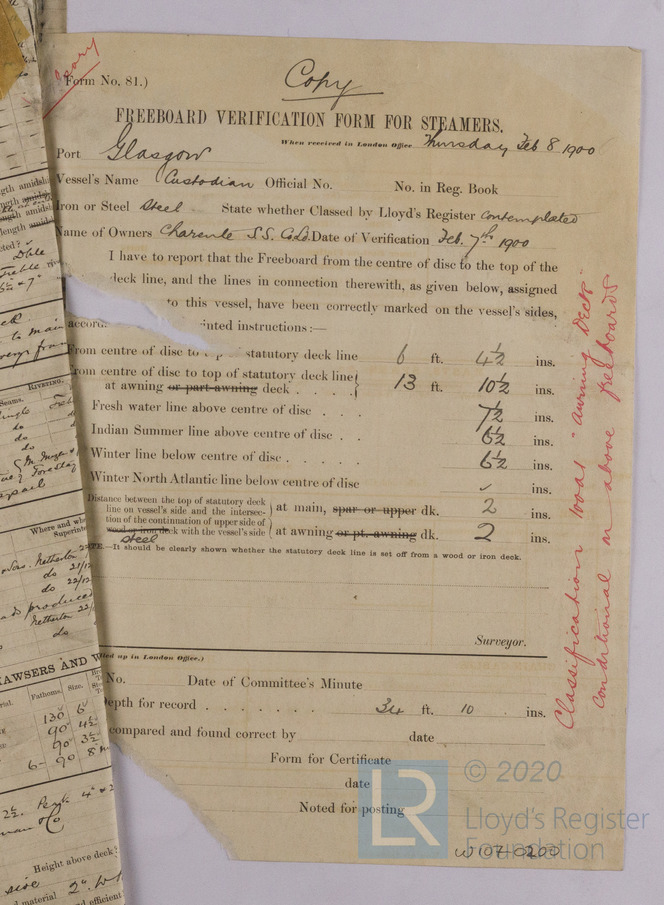 Form No. 81.)
Copy
FREEBOARD VERIFICATION FORM FOR STEAMERS.
When received in London Office Thursday Feb 8 1900
Port Glasgow
Vessel's Name Custodian Official No. No. in Reg. Book
Iron or Steel Steel State whether Classed by Lloyd's Register Contemplated
Name of Owners Charente S.S. Co Ld. Date of Verification Feb. 7th 1900
I have to report that the Freeboard from the centre of disc to the top of the
deck line, and the lines in connection therewith, as given below, assigned
to this vessel, have been correctly marked on the vessel's sides,
accord inted instructions :—
From centre of disc to statutory deck line 6 ft. 4½ ins.
From centre of disc to top of statutory deck line
at awning or part awning deck . . . . 13 ft. 10½ ins.
Fresh water line above centre of disc . . . 7½ ins.
Indian Summer line above centre of disc . . 6½ ins.
Winter line below centre of disc . . . . . 6½ ins.
Winter North Atlantic line below centre of disc ins.
Distance between the top of statutory deck
line on vessel's side and the intersec-
tion of the continuation of upper side of
wood or iron deck with the vessel's side
steel
at main, spar or upper dk. 2 ins.
at awning or pt. awning dk. 2 ins.
—It should be clearly shown whether the statutory deck line is set off from a wood or iron deck.
Surveyor.
lled up in London Office.)
No. Date of Committee's Minute
Depth for record . . . . . . . 34 ft. 10 ins.
compared and found correct by date
Form for Certificate
date
Noted for posting
W107-0200
Classification 100A1 "Awning Deck"
conditional on above freeboards
LR
© 2020
Lloyd's Register
Foundation
RIVETING.
Seams.
do
do
do
do
Where and wh
Superinte
Netherton
do 21/12
do 22/12
produced
Netherton
do
HAWSERS AND W
Fathoms. Size.
130 6
90 4½
90 3½
6 - 90 8
Height above deck